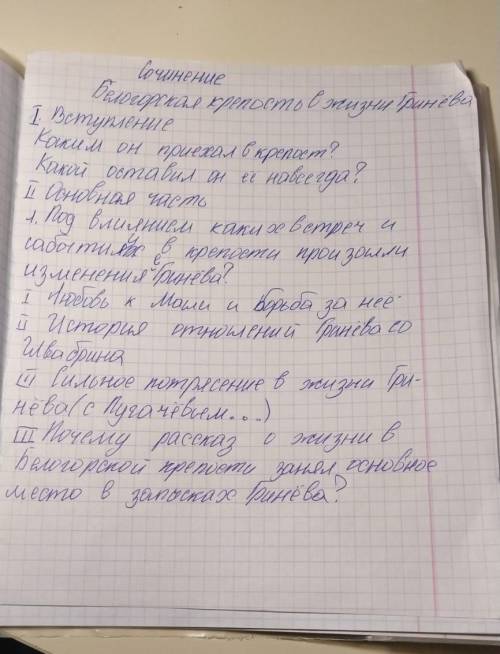 Сочинение
Белогорская крепость в жизни Гринёва
I Вступление
Каким он приехал в крепост?
Какой оставил он её навсегда?
II Основная часть
1. Под влиянием каких встреч и
сабытиях в крепости произошли
изменения с Гринёва?
I Любовь к Маши и борьба за неё
II История отношений Гринёва со
Швабрина
III Сильное потрясение в жизни Гри-
нёва (с Пугачёвием...)
III Почему рассказ о жизни в
Белогорской крепости занял основное
место в запысках Гринёва?